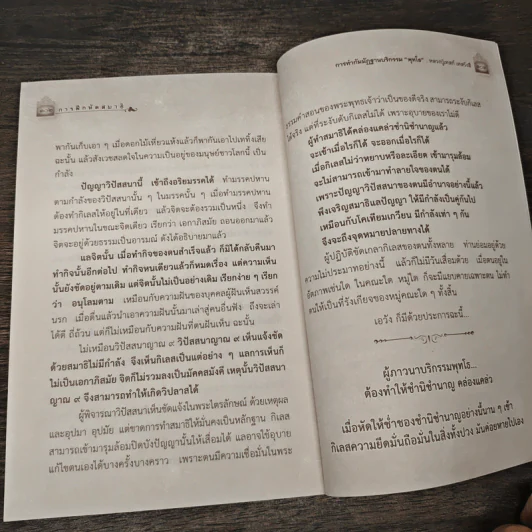 การฝึกหัดสมาธิ
พากันเก็บเอา ๆ เมื่อดอกไม้เหี่ยวแห้งแล้วก็พากันเอาไปเททิ้งเสีย
ฉะนั้น แล้วสังเวชสลดใจในความเป็นอยู่ของมนุษย์ชาวโลกนี้ เป็น
กำลัง
ปัญญาวิปัสสนานี้ เข้าถึงอริยมรรคได้ ทำมรรคปหาน
ตามกำลังของวิปัสสนานั้น ๆ ในมรรคนั้น ๆ เมื่อทำมรรคปหาน
ต้องทำกิเลสให้อยู่ในที่เดียว แล้วจิตจะต้องรวมเป็นหนึ่ง จึงทำ
มรรคปหานในขณะจิตเดียว เรียกว่า เอกาภิสมัย ถอนออกมาแล้ว
จิตจะอยู่ด้วยธรรมเป็นอารมณ์ ดังได้อธิบายมาแล้ว
แลจิตนั้น เมื่อทำกิจของตนสำเร็จแล้ว ก็มิได้กลับคืนมา
ทำกิจนั้นอีกต่อไป ทำกิจหนเดียวแล้วก็หมดเรื่อง แต่ความเห็น
นั้นยังชัดอยู่ตามเดิม แต่จิตนั้นไม่เป็นอย่างเดิม เรียกง่าย ๆ เรียก
ว่า อนุโลมตาม เหมือนกับความฝันของบุคคลผู้ฝันเห็นสวรรค์
นรก เมื่อตื่นแล้วนำเอาความฝันนั้นมาเล่าสู่คนอื่นฟัง ถึงจะเล่า
ได้ดี ถี่ถ้วน แต่ก็ไม่เหมือนกับความฝันที่ตนฝันเห็น ฉะนั้น
ไม่เหมือนวิปัสสนาญาณ ๙ วิปัสสนาญาณ ๙ เห็นแจ้งชัด
ด้วยสมาธิไม่มีกำลัง จึงเห็นกิเลสเป็นแต่อย่าง ๆ แลการเห็นก็
ไม่เป็นเอกาภิสมัย จิตก็ไม่รวมลงเป็นมัคคสมังคี เหตุนั้นวิปัสสนา
ญาณ ๙ จึงสามารถทำให้เกิดวิปลาสได้
ผู้พิจารณาวิปัสสนาเห็นชัดแจ้งในพระไตรลักษณ์ ด้วยเหตุผล
และอุปมา อุปมัย แต่ขาดการทำสมาธิให้มั่นคงเป็นหลักฐาน กิเลส
สามารถเข้ามารุมล้อมปิดบังปัญญานั้นให้เสื่อมได้ แลอาจใช้อุบาย
แก้ไขตนเองได้บางครั้งบางคราว เพราะตนมีความเชื่อมั่นในพระ
การทำกัมมัฏฐานบริกรรม "พุทโธ"
ธรรมคำสอนของพระพุทธเจ้าว่าเป็นของดีจริง สามารถระงับกิเลส
ได้จริง แต่ที่ระงับดับกิเลสไม่ได้ เพราะอุบายของเราไม่ดี
ผู้ทำสมาธิได้คล่องแคล่วชำนิชำนาญแล้ว
จะเข้าเมื่อไรก็ได้ จะออกเมื่อไรก็ได้
เมื่อกิเลสไม่ว่าหยาบหรือละเอียด เข้ามารุมล้อม
จะไม่สามารถเข้ามาทำลายใจของตนได้
เพราะปัญญาวิปัสสนาของตนมีอำนาจอย่างนี้แล้ว
พึงเจริญสมาธิแลปัญญา ให้มีกำลังเป็นคู่กันไป
เหมือนกับโคเทียมเกวียน มีกำลังเท่า ๆ กัน
จึงจะถึงจุดหมายปลายทางได้
ผู้ปฏิบัติขัดเกลากิเลสของตนทั้งหลาย ท่านย่อมอยู่ด้วย
ความไม่ประมาทอย่างนี้ แล้วก็ไม่มีวันเสื่อมด้วย เมื่อตนอยู่ใน
อัตภาพเช่นใด ในคณะใด หมู่ใด ก็จะมีแยบคายเฉพาะตน ไม่ทำ
ตนให้เป็นที่รังเกียจของหมู่คณะใด ๆ ทั้งสิ้น
เอวัง ก็มีด้วยประการฉะนี้...
ผู้ภาวนาบริกรรมพุทโธ...
ต้องทำให้ชำนิชำนาญ คล่องแคล่ว
เมื่อหัดให้ช่ำชองชำนิชำนาญอย่างนี้นาน ๆ เข้า
กิเลสความยึดมั่นถือมั่นในสิ่งทั้งปวง มันค่อยหายไปเอง